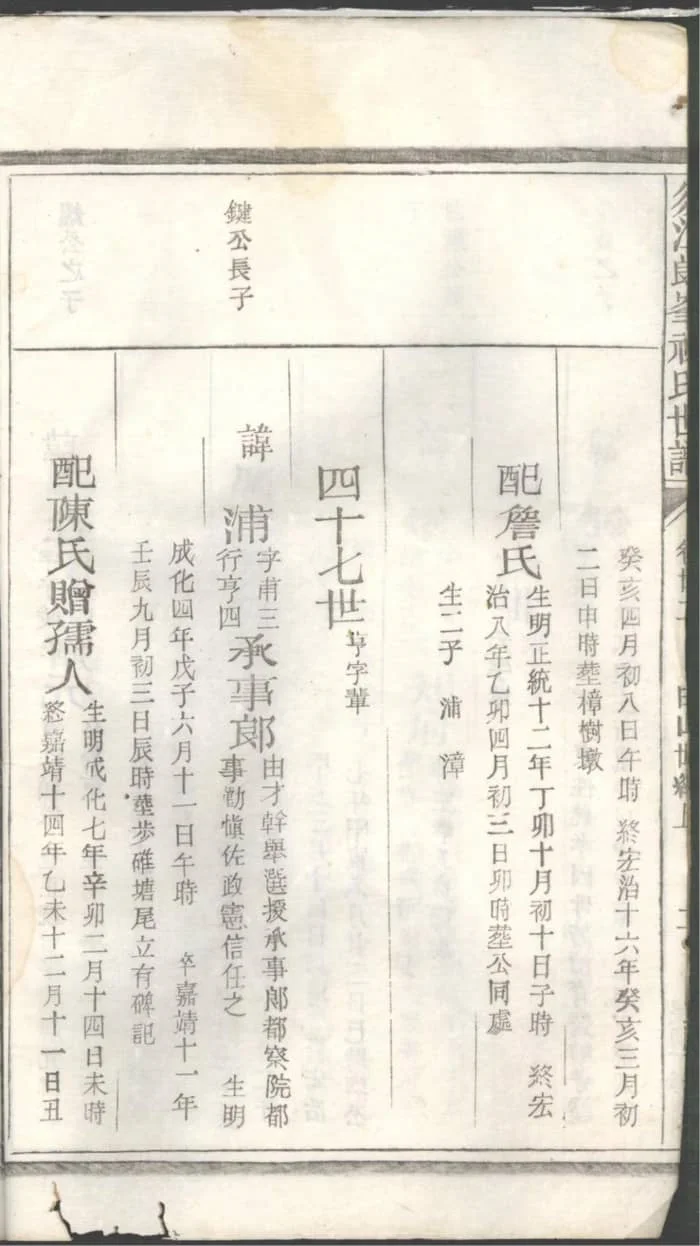 須江郎峯祝氏世譜
癸亥四月初八日午時　終宏治十六年癸亥三月初
二日申時塟樟樹墩
配詹氏
生明正統十二年丁卯十月初十日子時　終宏
治八年乙卯四月初三日卯時塟公同處
生二子　浦　漳
四十七世亨字輩
鍵公長子
諱浦
字甫三
行亨四
承事郎
由才幹舉選授承事郎都察院都
事勤慎佐政憲信任之　生明
成化四年戊子六月十一日午時　卒嘉靖十一年
壬辰九月初三日辰時塟步碓塘尾立有碑記
配陳氏贈孺人
生明成化七年辛卯二月十四日未時
終嘉靖十四年乙未十二月十一日丑